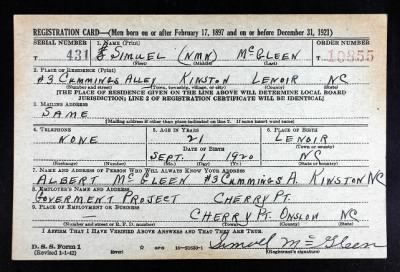 REGISTRATION CARD—(Men born on or after February 17, 1897 and on or before December 31, 1921)
SERIAL NUMBER 1. NAME (Print) ORDER NUMBER
T 431 SIMUEL (NMN) McGLEEN T 10855
(First) (Middle) (Last)
2. PLACE OF RESIDENCE (Print)
#3 CUMMINGS ALLEY KINSTON LENOIR NC
(Number and street) (Town, township, village, or city) (County) (State)
[THE PLACE OF RESIDENCE GIVEN ON THE LINE ABOVE WILL DETERMINE LOCAL BOARD
JURISDICTION; LINE 2 OF REGISTRATION CERTIFICATE WILL BE IDENTICAL]
3. MAILING ADDRESS
SAME
(Mailing address if other than place indicated on line 2. If same insert word same)
4. TELEPHONE 5. AGE IN YEARS 6. PLACE OF BIRTH
NONE 21 LENOIR
DATE OF BIRTH (Town or county)
SEPT. 1 1920 NC
(Exchange) (Number) (Mo.) (Day) (Yr.) (State or country)
7. NAME AND ADDRESS OF PERSON WHO WILL ALWAYS KNOW YOUR ADDRESS
ALBERT McGLEEN #3 CUMMINGS A. KINSTON NC
8. EMPLOYER'S NAME AND ADDRESS
GOVERMENT PROJECT CHERRY PT.
9. PLACE OF EMPLOYMENT OR BUSINESS
CHERRY PT. ONSLOW NC
(Number and street or R. F. D. number) (Town) (County) (State)
I AFFIRM THAT I HAVE VERIFIED ABOVE ANSWERS AND THAT THEY ARE TRUE.
D. S. S. Form 1
(Revised 1-1-42) (over) 16—21630-1 Simuel McGleen